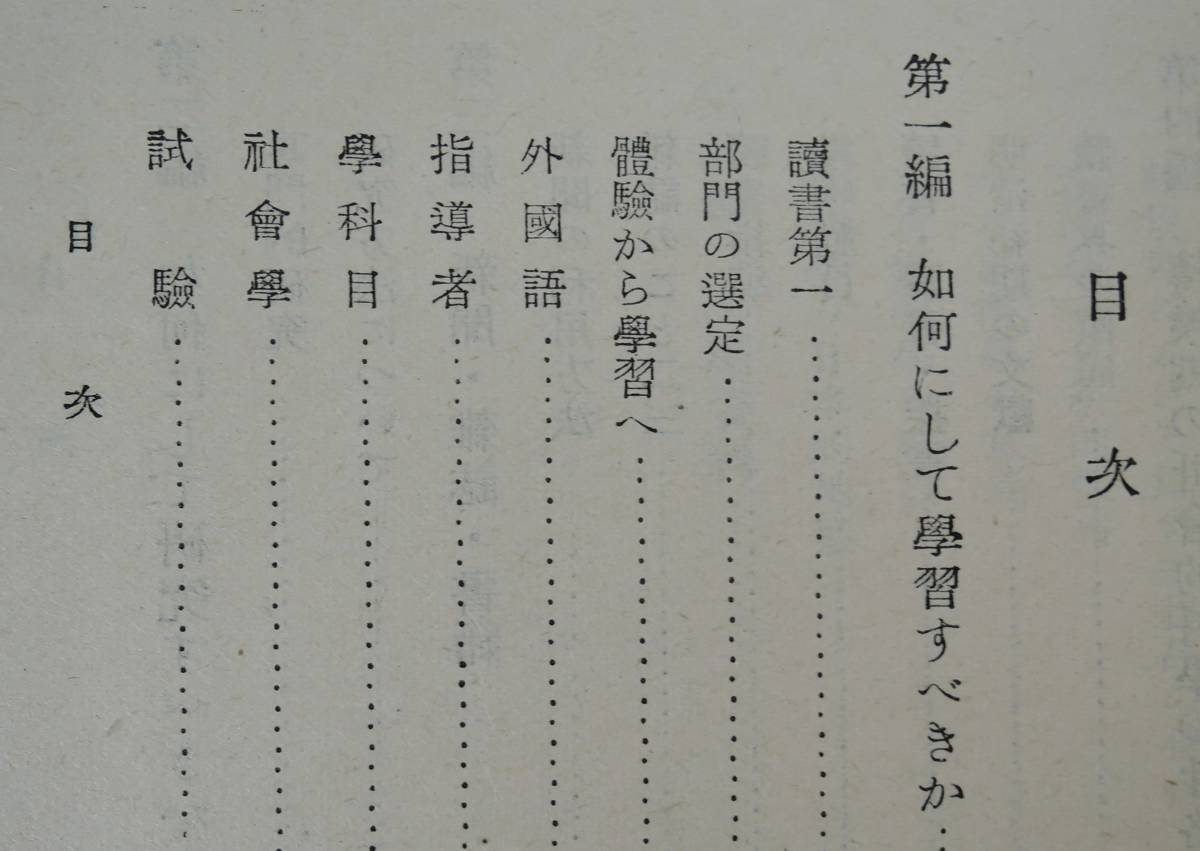 目次
第一編 如何にして學習すべきか……
讀書第一……
部門の選定……
體驗から學習へ……
外國語……
指導者……
學科目……
社會學……
試驗……
目次